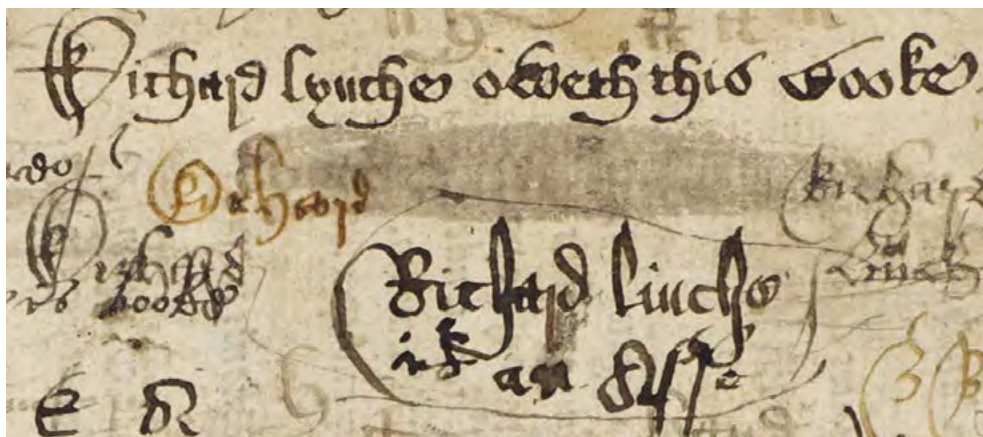 Richard lynche oweth this booke
Richard
Richard
Richard
Linch
booke
Richard linche
is an Asse
E R